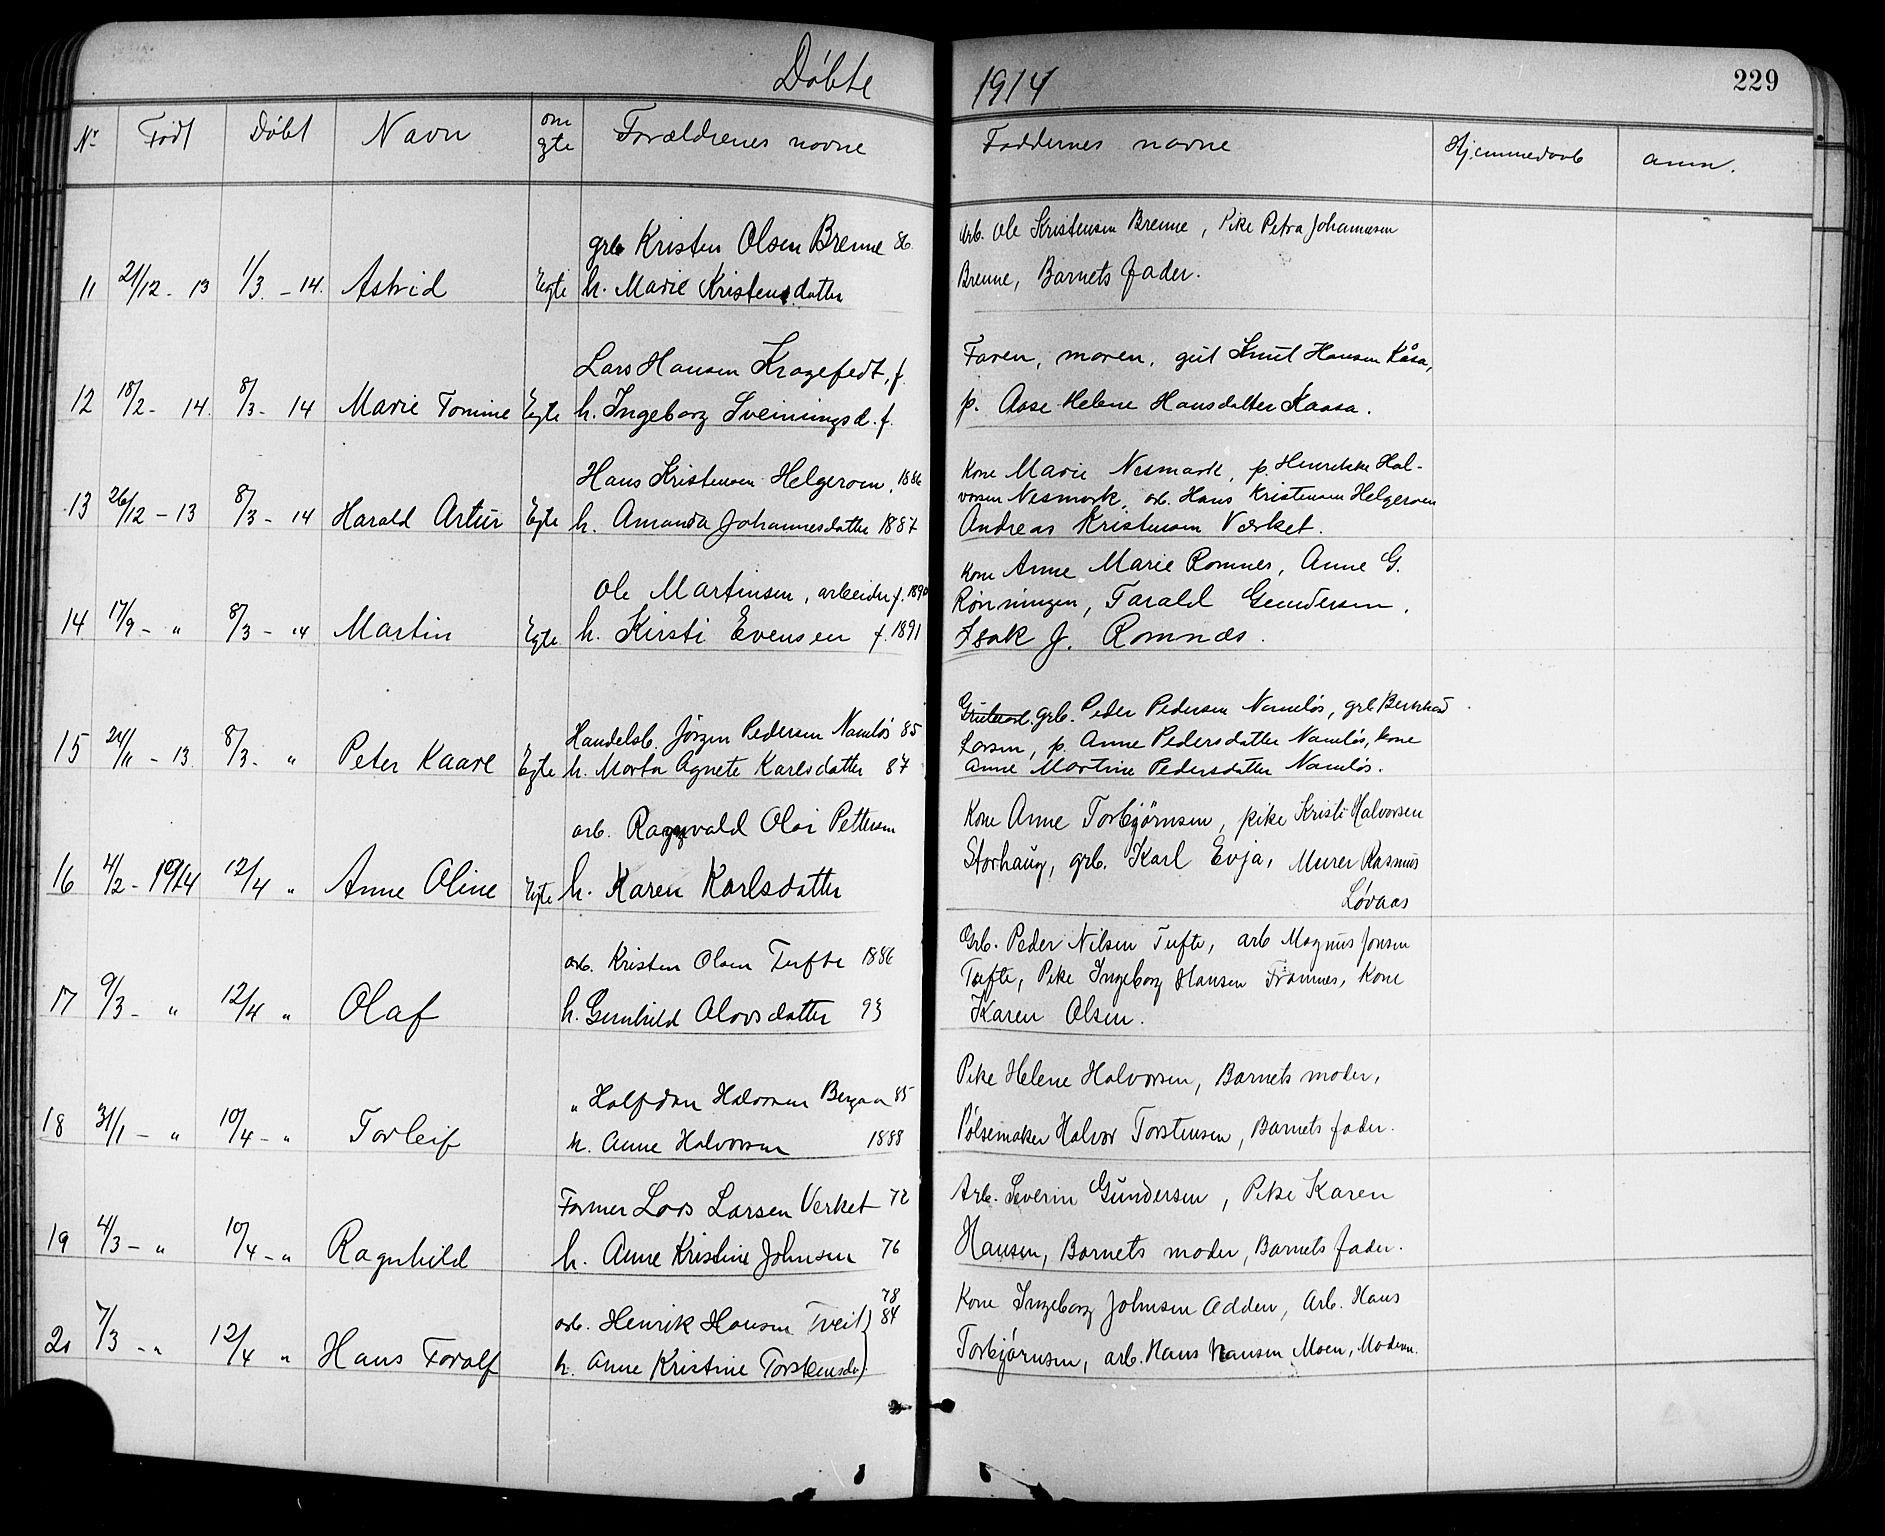 Døbte 1914 229
Nr Født Døbt Navn om ægte Forældrenes navne Faddernes navne Hjemmedaab anm.
grb Kristen Olsen Brenne 86. Arb. Ole Kristensen Brenne, Pike Petra Johannesen
11 21/12 - 13 1/3 - 14. Astrid Egte h. Marie Kristensdatter Brenne, Barnets fader.
Lars Hansen Kragefedt, f. Faren, moren, gut Knut Hansen Kåsa,
12 18/2 - 14. 8/3 - 14 Marie Tomine Egte h. Ingeborg Sveinungsd. f. p. Aase Helene Hansdatter Kaasa.
Hans Kristensen Helgeroen, 1886 Kone Marie Nesmark, p. Henrikke Hal-
vorsen Nesmark, arb. Hans Kristensen Helgeroen
13 26/12 - 13 8/3 - 14 Harald Artur Egte h. Amanda Johannesdatter 1887 Andreas Kristensen Værket.
Ole Martinsen, arbeider f. 1890 Kone Anne Marie Romnes, Anne G.
Rönningen, Tarald Gundersen,
14 17/9 - " 8/3 - " Martin Egte h. Kirsti Evensen f. 1891 Isak J. Romnæs.
grb. Peder Pedersen Namløs, grb Bernhard
Handelsb. Jørgen Pedersen Namløs 85 Larsen, p. Anne Pedersdatter Namløs, kone
15 24/11 - 13 8/3 - " Peter Kaare Egte h. Marta Agnete Karlsdatter 87 Anne Martine Pedersdatter Namløs.
arb. Ragnvald Olai Pettersen Kone Anne Torbjørnsen, pike Kristi Halvorsen
16 4/2 - 1914 12/4 " Anne Oline Egte h. Karen Karlsdatter Storhaug, grb. Karl Evja, Murer Rasmus
Løvaas
arb. Kristen Olsen Tufte 1886 Grb. Peder Nilsen Tufte, arb Magnus Jonsen
Tufte, Pike Ingeborg Hansen Framnes, Kone
17 9/3 - " 12/4 " Olaf h. Gunhild Olavsdatter 93 Karen Olsen.
" Halfdan Halvorsen 85 Pike Helene Halvorsen, Barnets moder,
18 31/1 - " 10/4 - " Torleif h. Anne Halvorsen 1888 Pølsemaker Halvor Torstensen, Barnets fader.
Former Lars Larsen Verket 72 Arb. Severin Gundersen, Pike Karen
19 4/3 - " 10/4 - " Ragnhild h. Anne Kristine Johnsen 76 Hansen, Barnets moder, Barnets fader.
arb. Henrik Hansen Tveit 78 84 Kone Ingeborg Johnsen Adden, Arb. Hans
20 7/3 - " 12/4 " Hans Toralf h. Anne Kristine Torstensdr Torbjørnsen, arb. Hans Hansen Moen, Moderen.